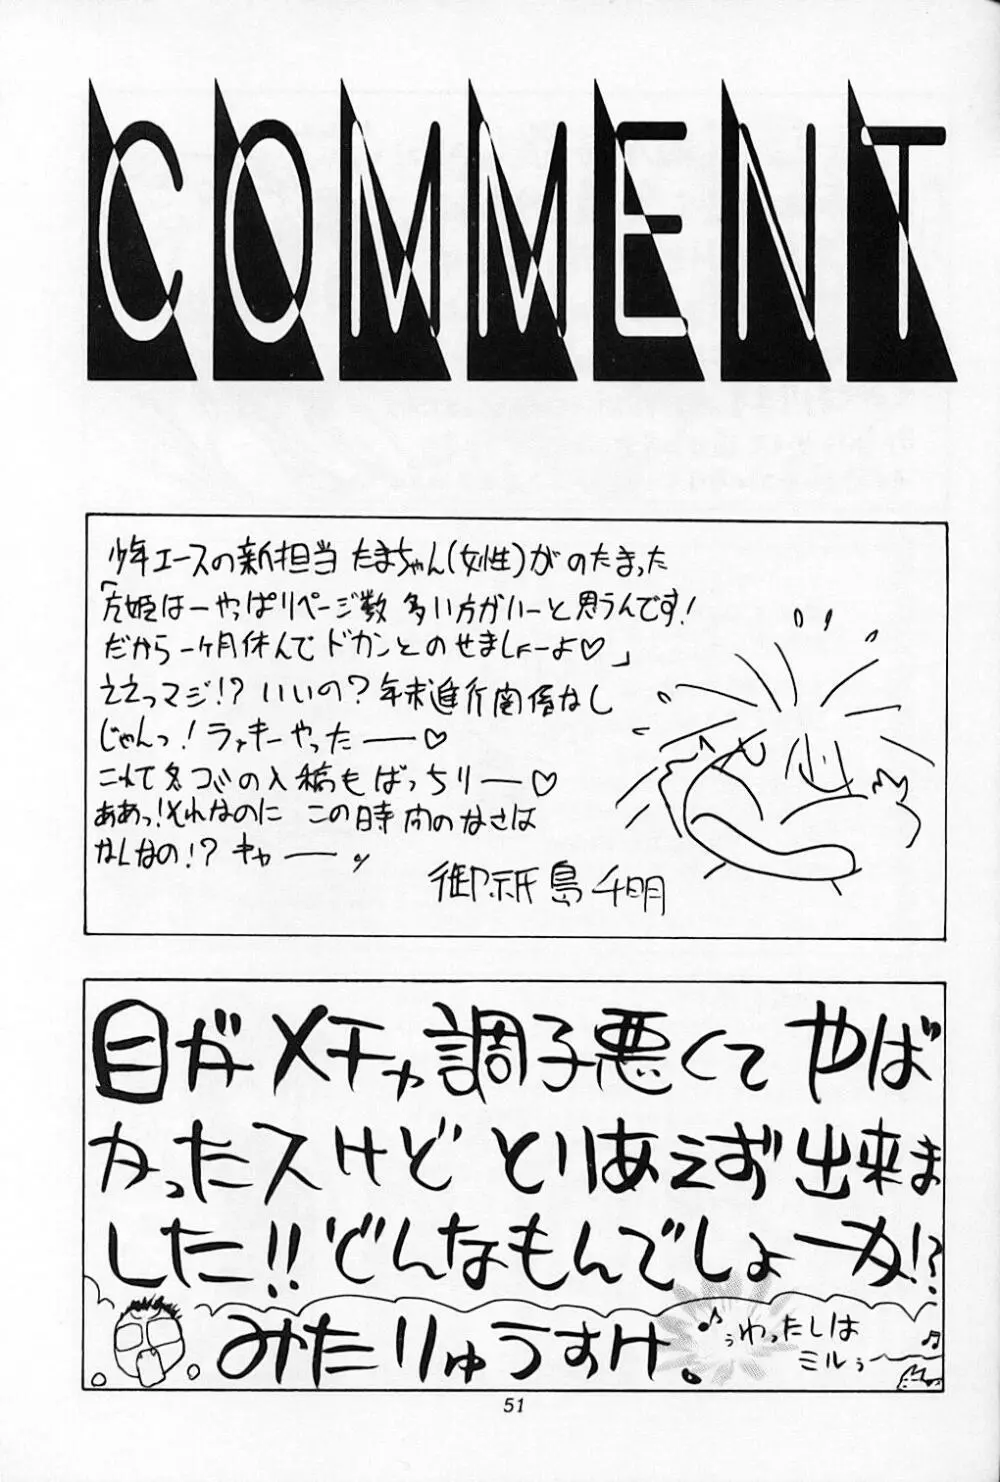 COMMENT
少年エースの新担当 たまちゃん(女性)がのたまった
「左姫はーやっぱりページ数 多い方がいーと思うんです!
だから一ヶ月休んで ドカンとのせましょーよ♡」
ええっマジ!? いいの? 年末進行関係なし
じゃんっ! ラッキー やったー♡
これで冬コミの入稿もばっちりー♡
ああっ! それなのに この時間のなさは
なんなの!? キャー ッ
御祇島千明
目がメチャ調子悪くて やば
かったスけど とりあえず 出来ま
した!! どんなもんでしょーか!?
みたりゅうすけ.
♪ぅわったしは
ミルぅ〜♬
51